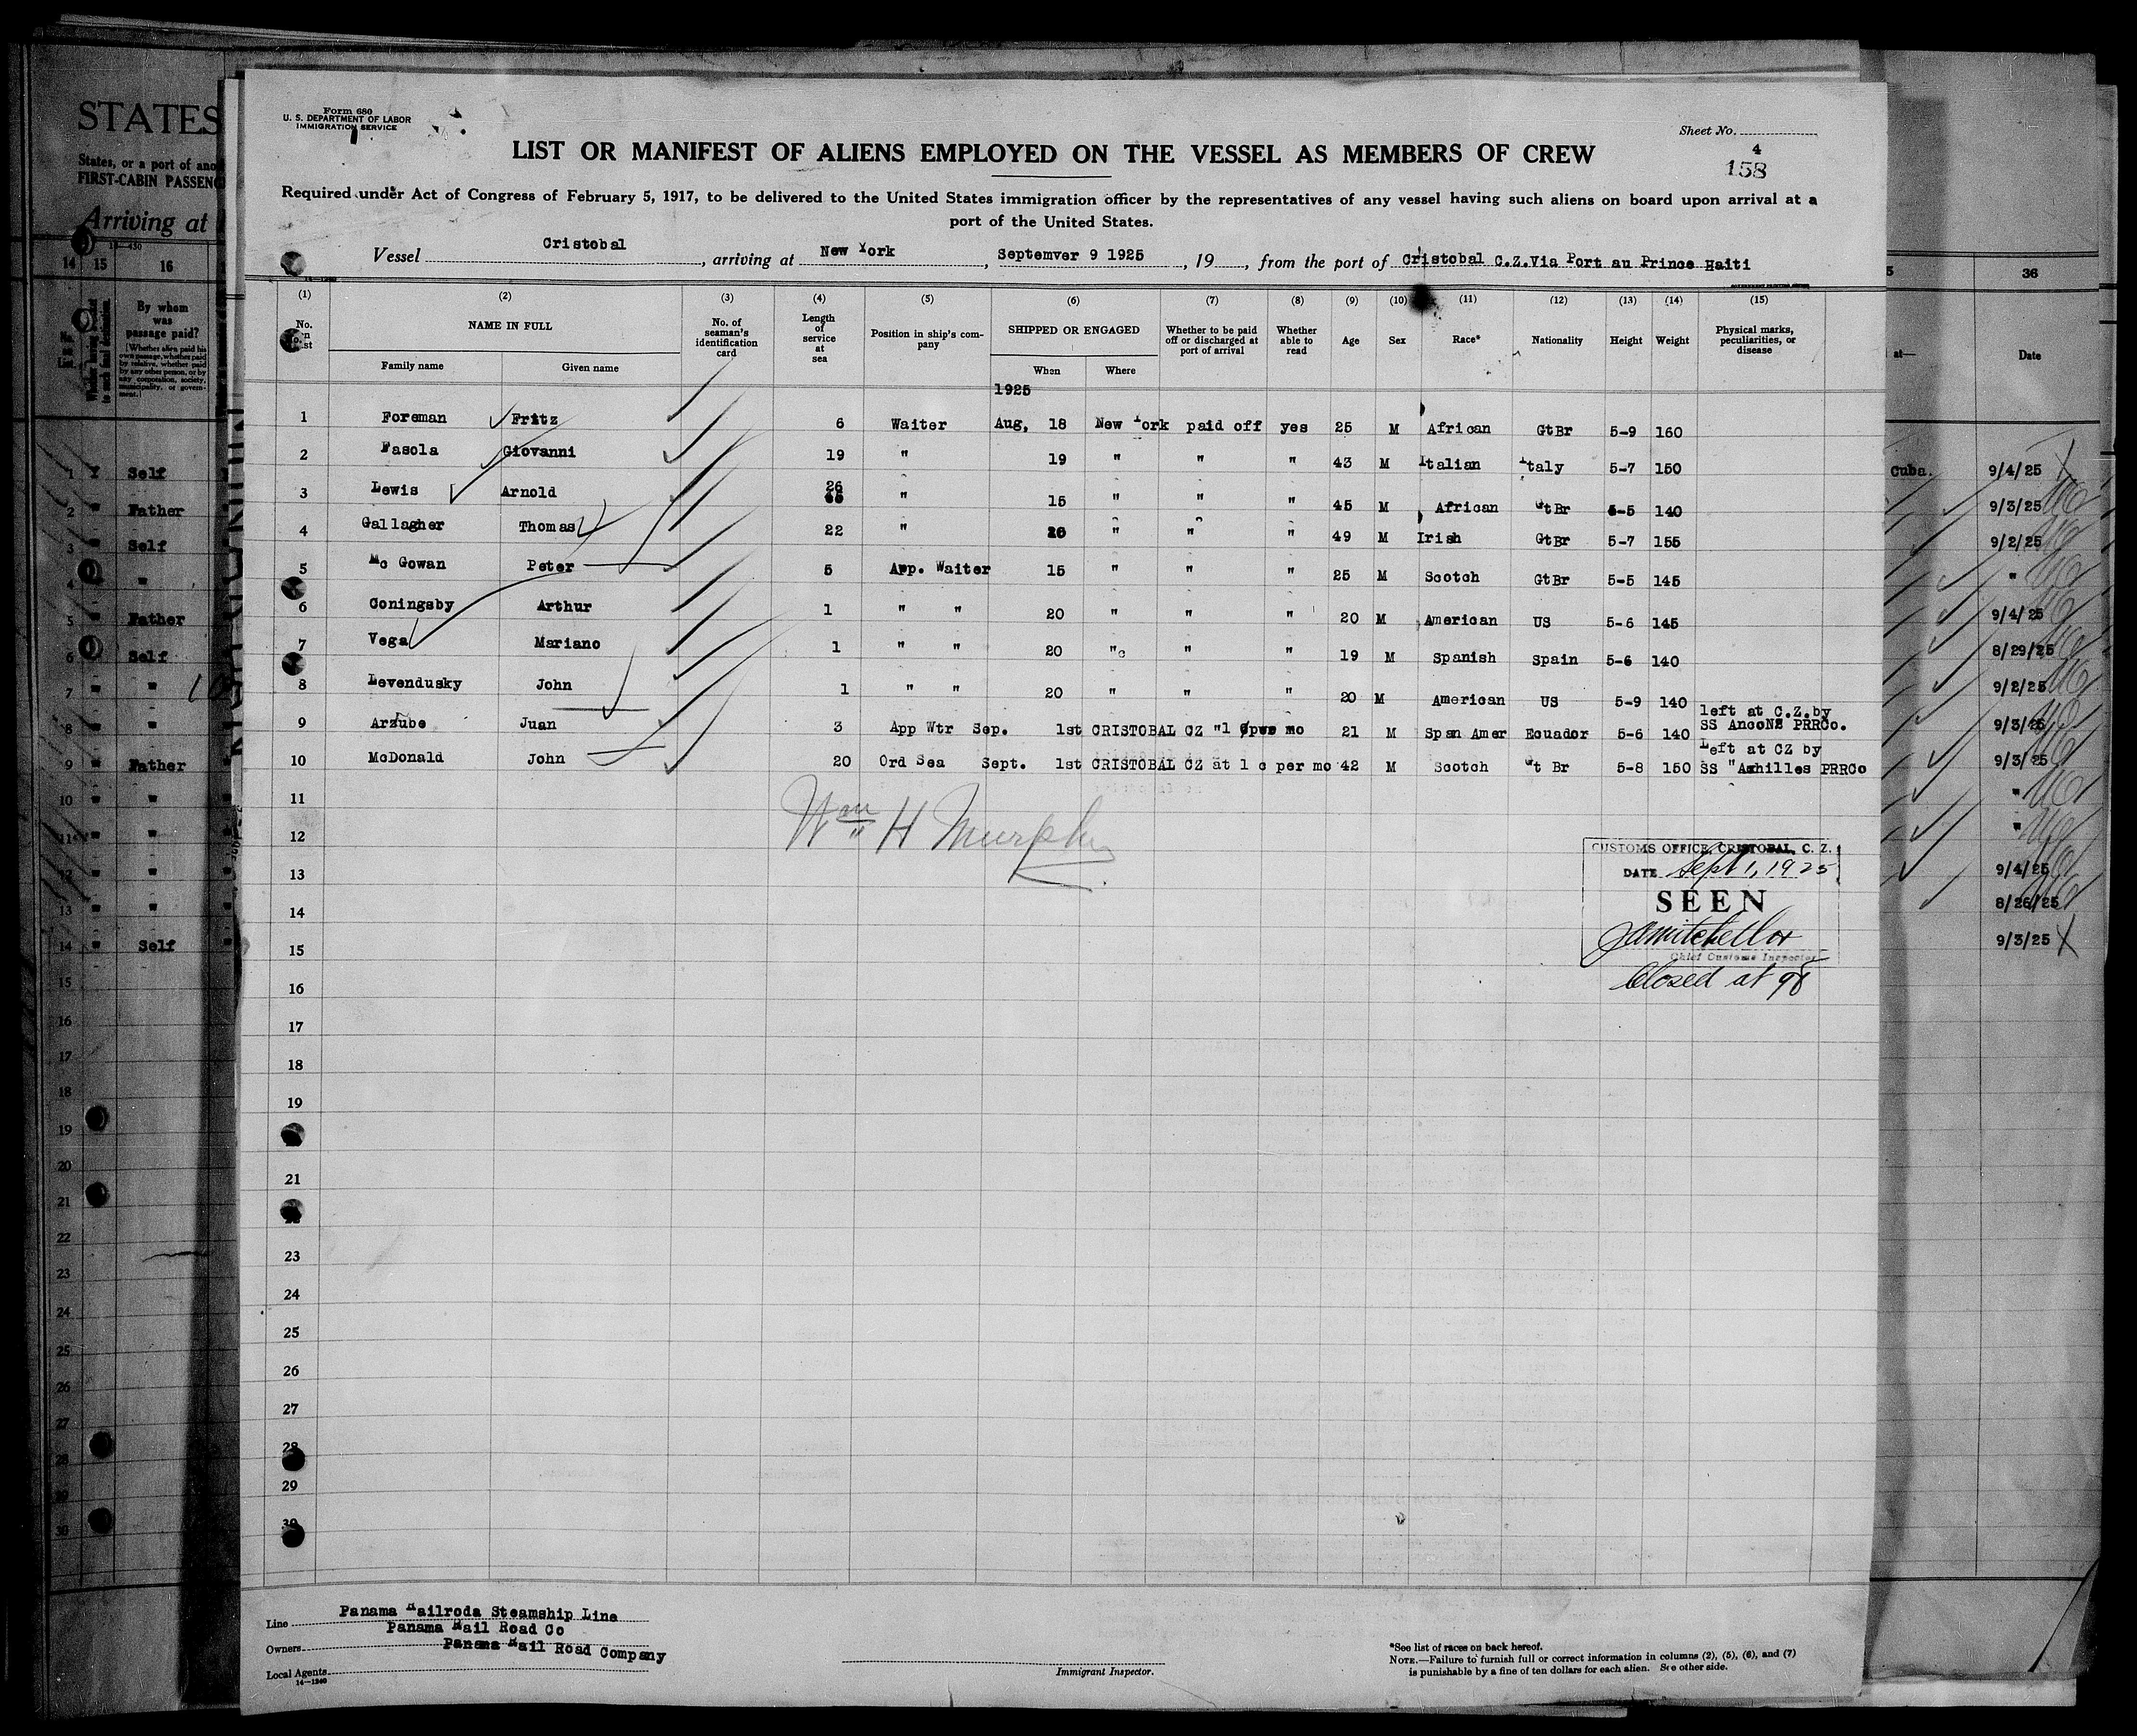 Form 680
U. S. DEPARTMENT OF LABOR
IMMIGRATION SERVICE
Sheet No.
4
158
LIST OR MANIFEST OF ALIENS EMPLOYED ON THE VESSEL AS MEMBERS OF CREW
Required under Act of Congress of February 5, 1917, to be delivered to the United States immigration officer by the representatives of any vessel having such aliens on board upon arrival at a
port of the United States.
Vessel Cristobal, arriving at New York, Septemver 9 1925, 19, from the port of Cristobal C.Z.Via Port au Prince Haiti
(1) (2) (3) (4) (5) (6) (7) (8) (9) (10) (11) (12) (13) (14) (15)
No. on list
NAME IN FULL
Family name Given name
No. of seaman's identification card
Length of service at sea
Position in ship's company
SHIPPED OR ENGAGED
When Where
Whether to be paid off or discharged at port of arrival
Whether able to read
Age Sex Race* Nationality Height Weight
Physical marks, peculiarities, or disease
1925
1 Foreman Fritz 6 Waiter Aug, 18 New York paid off yes 25 M African GtBr 5-9 160
2 Fasola Giovanni 19 " 19 " " " 43 M Italian Italy 5-7 150
3 Lewis Arnold 26 " 15 " " " 45 M African GtBr 5-5 140
4 Gallagher Thomas 22 " 26 " " " 49 M Irish GtBr 5-7 155
5 Mc Gowan Peter 5 App. Waiter 15 " " " 25 M Scotch GtBr 5-5 145
6 Coningsby Arthur 1 " " 20 " " " 20 M American US 5-6 145
7 Vega Mariano 1 " " 20 " " " 19 M Spanish Spain 5-6 140
8 Levendusky John 1 " " 20 " " " 20 M American US 5-9 140
left at C.Z.by
9 Arzube Juan 3 App Wtr Sep. 1st CRISTOBAL CZ "1 mo 21 M Span Amer Ecuador 5-6 140 SS AnconE PRRCo.
Left at CZ by
10 McDonald John 20 Ord Sea Sept. 1st CRISTOBAL CZ at 1 c per mo 42 M Scotch Gt Br 5-8 150 SS "Achilles PRRCo
11
12
13
14
15
16
17
18
19
21
23
24
25
26
27
28
29
30
Wm H Murphy
CUSTOMS OFFICE, CRISTOBAL, C. Z.
DATE Sept 1, 1925
SEEN
Chief Customs Inspector
Closed at 98
Line Panama Railroda Steamship Line
Owners Panama Rail Road Co
Local Agents Panama Rail Road Company
14—1240
Immigrant Inspector.
*See list of races on back hereof.
NOTE.—Failure to furnish full or correct information in columns (2), (5), (6), and (7)
is punishable by a fine of ten dollars for each alien. See other side.
STATES
States, or a port of
FIRST-CABIN
Arriving at
14 15 16
By whom was passage paid?
1 Self
2 " Father
3 " Self
4 " "
5 " Father
6 Self
7 " "
8 " "
9 " Father
10 " "
11 " "
12 " "
13 " "
14 " Self
15
16
17
18
19
20
21
22
23
24
25
26
27
28
30
36
at—
Date
Cuba. 9/4/25
9/3/25
9/2/25
"
9/4/25
8/29/25
9/2/25
9/3/25
9/3/25
"
"
9/4/25
8/26/25
9/3/25